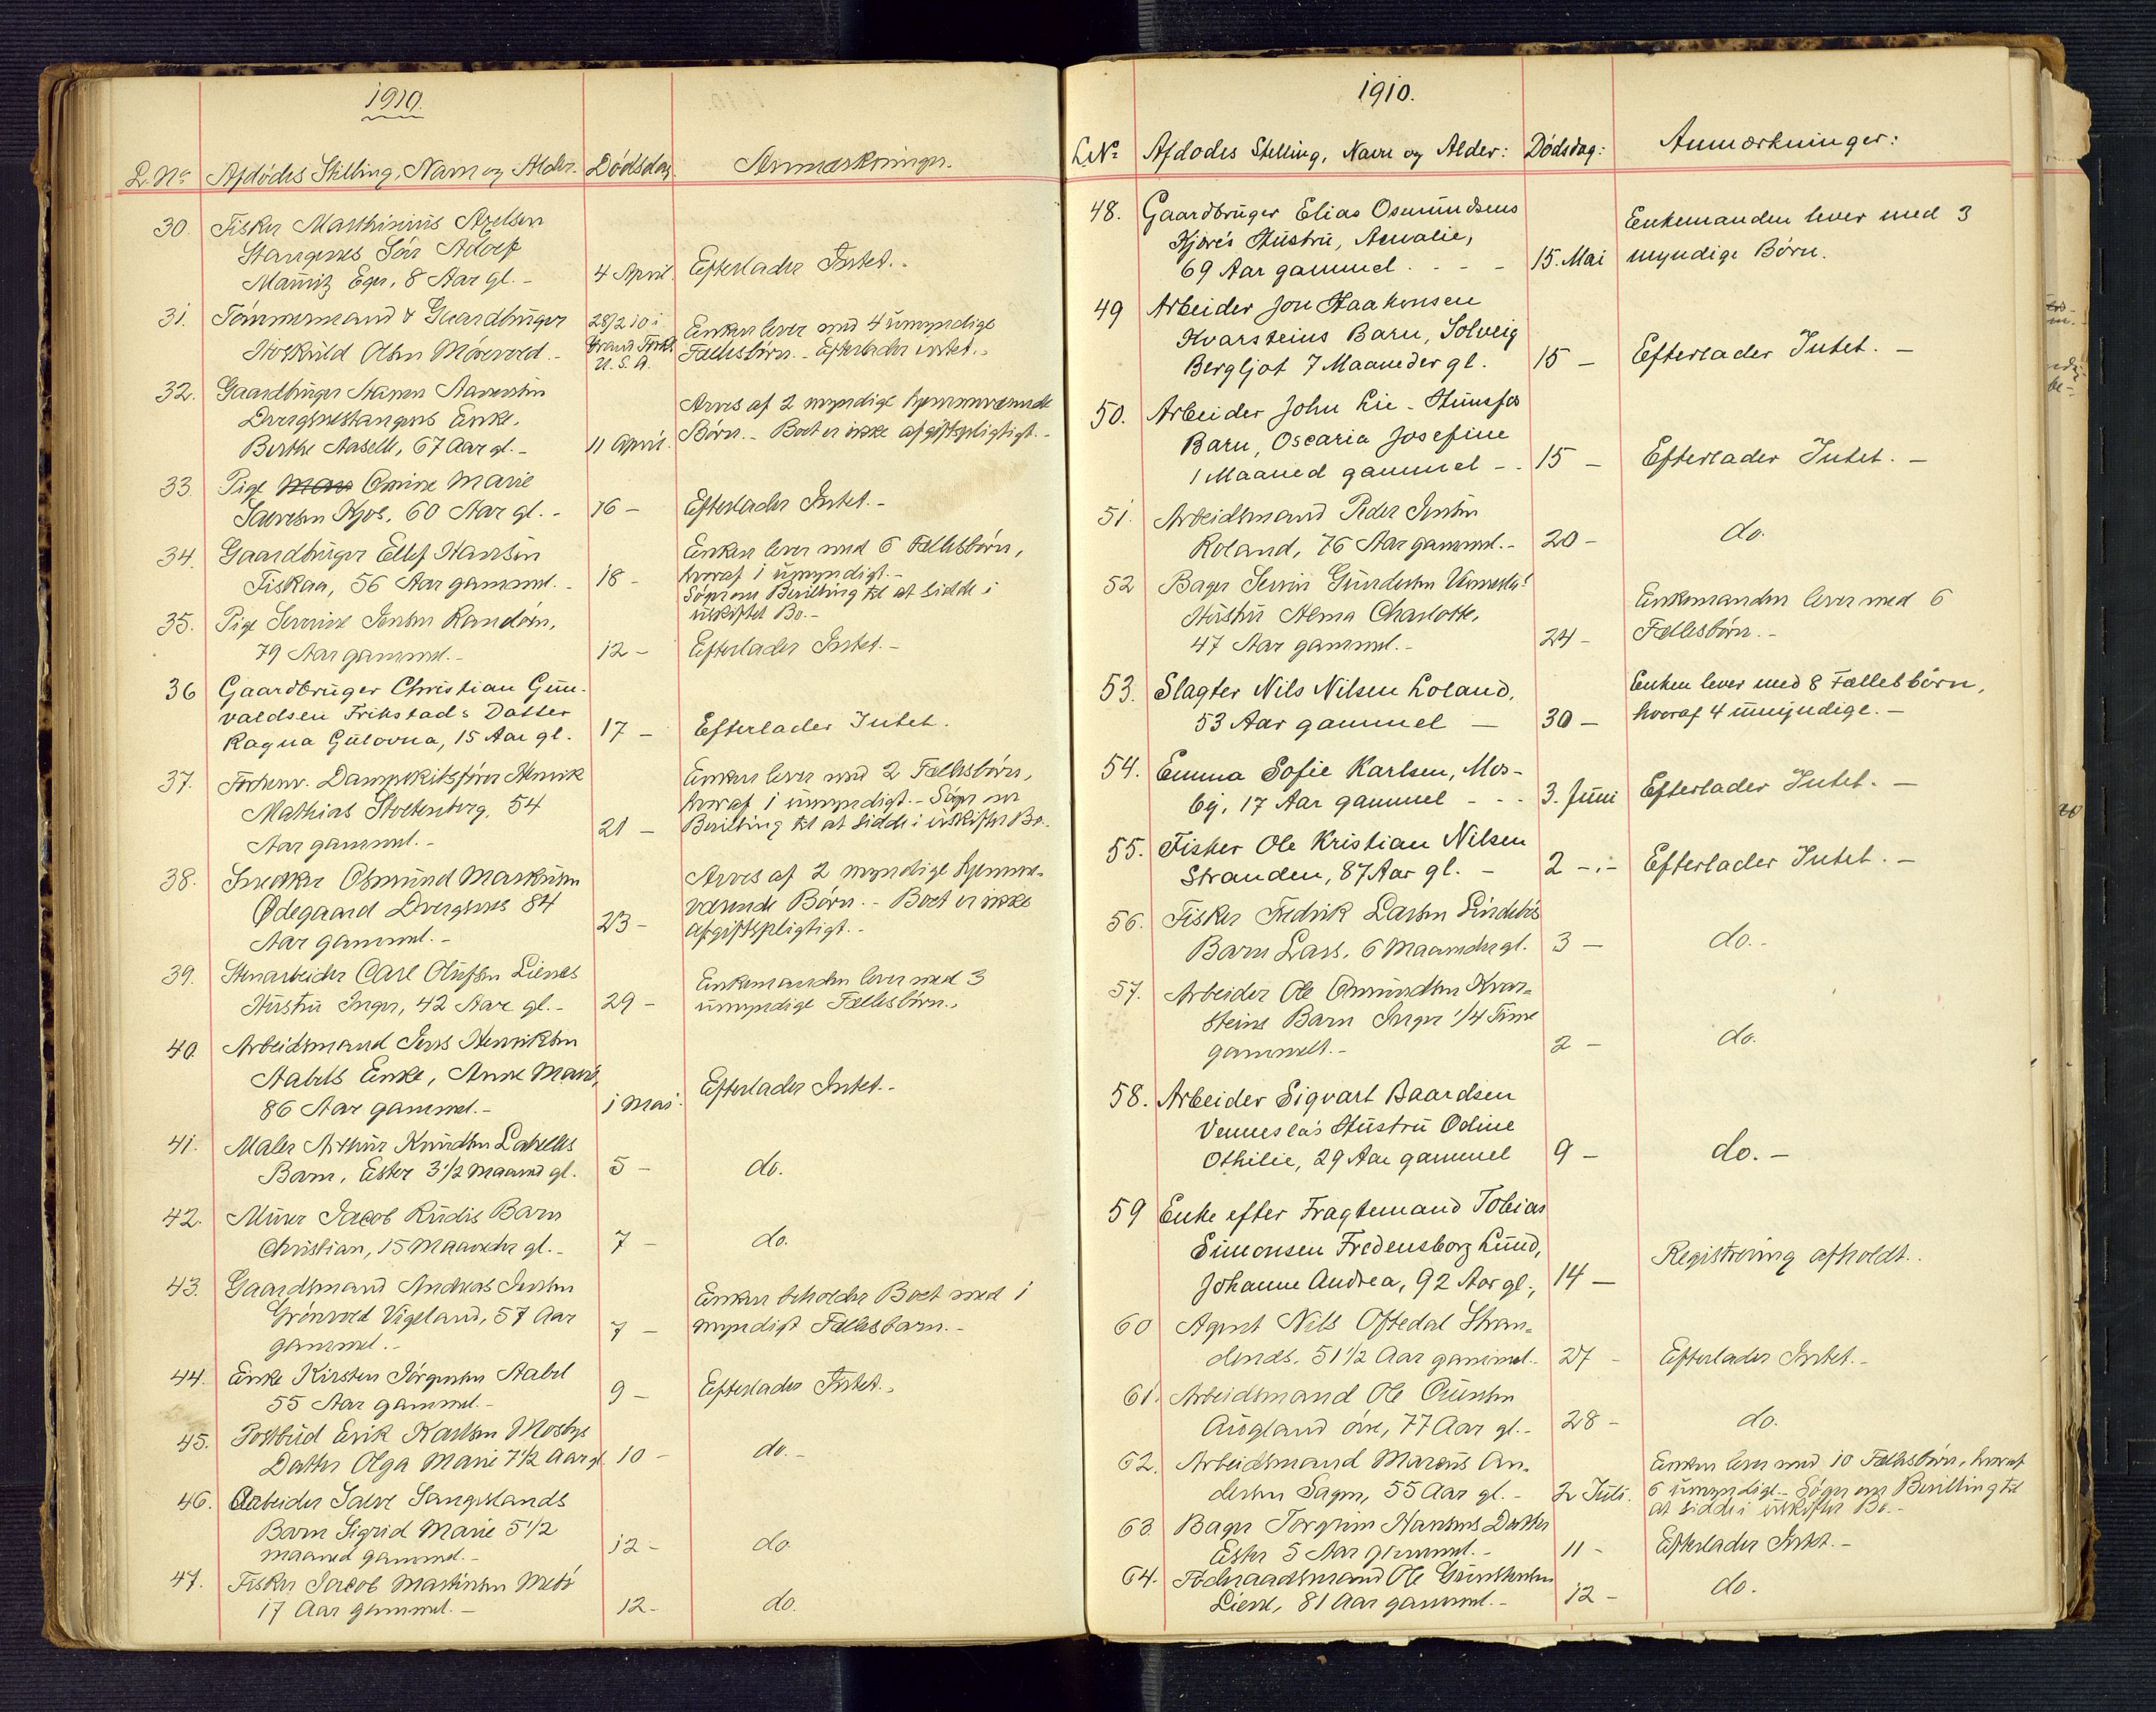 1910.
L. No. Afdødes Stilling, Navn og Alder. Dødsdag Anmærkninger.
30. Fisker Marthinius Axelsen
Stangnes Søn Adolf
Mauritz Eger, 8 Aar gl. - 4 April. Efterlader Intet. -
31. Tømmermand & Gaardbruger 28/2 10 i Enken lever med 4 umyndige
Hoskuld Olsen Mosevold. - Grand Forks Fællesbørn. - Efterlader intet. -
U. S. A.
32. Gaardbruger Aanen Aanensen
Dvergsnestangens Enke, Arves af 2 myndige hjemmeværende
Berthe Aaselle, 67 Aar gl. - 11 April. Børn. - Boet er ikke afgiftspligtigt. -
33. Pige Omine Marie
Salvesen Kjos, 60 Aar gl. - 16 - Efterlader Intet. -
34. Gaardbruger Ellef Hansen Enken lever med 6 Fællesbørn,
Fiskaa, 56 Aar gammel. - 18 - hvoraf 1 umyndigt. -
Søger om Bevilling til at sidde i
uskiftet Bo. -
35. Pige Severine Jensen Randøen,
79 Aar gammel. - 12 - Efterlader Intet. -
36 Gaardbruger Christian Gun-
valdsen Frikstads Datter
Ragna Gulovna, 15 Aar gl. 17 - Efterlader Intet.
37. Forhenv. Dampskibsfører Henrik Enken lever med 2 Fællesbørn,
Mathias Stoltenberg, 54 hvoraf 1 umyndigt. - Søger om
Aar gammel. - 21 - Bevilling til at sidde i uskiftet Bo. -
38. Snedker Osmund Markusen Arves af 2 myndige hjemme-
Ødegaard Dvergsnes 84 værende Børn. - Boet er ikke
Aar gammel. - 23 - afgiftspligtigt. -
39. Stenarbeider Carl Olufsen Lienes Enkemanden lever med 3
Hustru Inger, 42 Aar gl. - 29 - umyndige Fællesbørn. -
40. Arbeidsmand Jens Henriksen
Aabels Enke, Anne Marie,
86 Aar gammel. - 1 Mai. Efterlader Intet. -
41. Maler Arthur Knudsen
Barn, Ester 3 1/2 Maaned gl. 5 - do.
42. Murer Jacob Rudis Barn
Christian, 15 Maaneder gl. - 7 - do.
43. Gaardsmand Andreas Jensen
Grønvold Vigeland, 57 Aar Enken beholder Boet med 1
gammel. - 7 - myndigt Fællesbarn. -
44. Enke Kirsten Jørgensen Aabel
55 Aar gammel. - 9 - Efterlader Intet. -
45. Postbud Erik Karlsen Mosbys
Datter Olga Marie 7 1/2 Aar gl. 10 - do. -
46. Arbeider Salve Sangeslands
Barn Sigrid Marie 5 1/2
maaned gammel. - 12 - do.
47. Fisker Jacob Martinsen
17 Aar gammel. - 12 - do.
1910.
LNo Afdødes Stilling, Navn og Alder: Dødsdag: Anmærkninger:
48. Gaardbruger Elias Osmundsens
Kjærés Hustru, Amalie, Enkemanden lever med 3
69 Aar gammel. - - - 15. Mai myndige Børn.
49 Arbeider Jon Haakonsen
Kvarsteins Barn, Solveig
Bergljot 7 Maaneder gl. 15 - Efterlader Intet. -
50. Arbeider John Lie - Hunsfos
Barn, Oscaria Josefine
1 Maaned gammel - . 15 - Efterlader Intet. -
51. Arbeidsmand Peder Jensen
Roland, 76 Aar gammel. - 20 - do.
52 Bager Severin Gundersen Vennesla's
Hustru Alma Charlotte, Enkemanden lever med 6
47 Aar gammel. - 24 - Fællesbørn. -
53. Slagter Nils Nilsen Loland, Enken lever med 8 Fællesbørn,
53 Aar gammel - 30 - hvoraf 4 umyndige. -
54. Emma Sofie Karlsen, Mos-
by, 17 Aar gammel - - - 3. Juni Efterlader Intet. -
55. Fisker Ole Kristian Nilsen
Stranden, 87 Aar gl. - 2 -.- Efterlader Intet. -
56. Fisker Fredrik Larsen Lindebøs
Barn Lars, 6 Maaneder gl. 3 - do. -
57. Arbeider Ole Omundsen Kvar-
steins Barn Inger 1/4 Time
gammelt. - 2 - do.
58. Arbeider Sigvart Baardsen
Vennesla's Hustru Odine
Othilie, 29 Aar gammel 9 - do. -
59 Enke efter Fragtemand Tobias
Simonsen Fredensborg Lund,
Johanne Andrea, 92 Aar gl., 14 - Registrering afholdt. .
60 Agent Nils Oftedal Stran-
dends, 51 1/2 Aar gammel. - 27 - Efterlader Intet. -
61. Arbeidsmand Ole
Augland øvre, 77 Aar gl. - 28 - do.
62. Arbeidsmand Marcus An- Enken lever med 10 Fællesbørn, hvoraf
dersen Sagen, 55 Aar gl. - 2 Juli. 6 umyndige. - Søger om Bevilling til
at sidde i uskiftet Bo. -
63. Bager Torgrim Hansens Datter
Ester 5 Aar gammel. - 11 - Efterlader Intet. -
64. Føderaadsmand Ole Gundersen
Liene, 81 Aar gammel. - 12 - do.